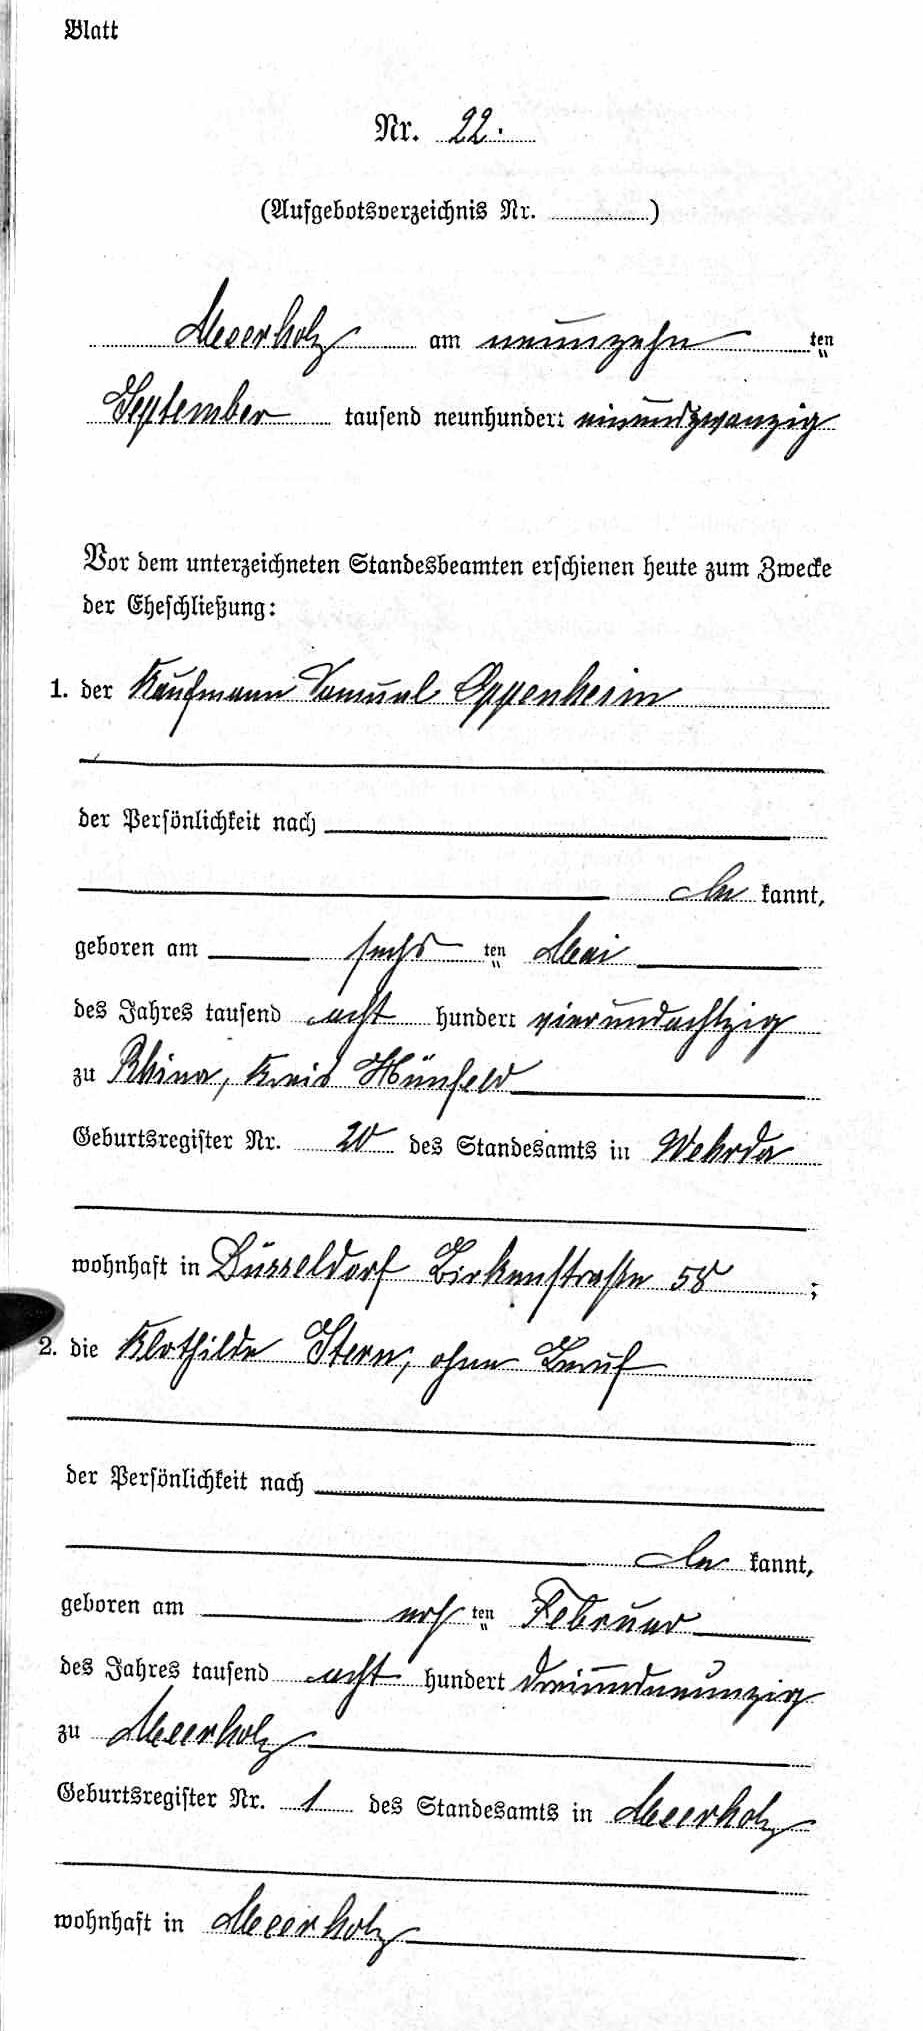 Blatt
Nr. 22.
(Aufgebotsverzeichnis Nr. )
Meerholz am neunzehn ten
September tausend neunhundert einundzwanzig
Vor dem unterzeichneten Standesbeamten erschienen heute zum Zwecke
der Eheschließung:
1. der Kaufmann Samuel Oppenheim
der Persönlichkeit nach
be kannt,
geboren am sechs ten Mai
des Jahres tausend acht hundert vierundachtzig
zu Rhina, Kreis Hünfeld
Geburtsregister Nr. 20 des Standesamts in Wehrda
wohnhaft in Düsseldorf Birkenstraße 58 ;
2. die Klothilde Stern, ohne Beruf
der Persönlichkeit nach
be kannt,
geboren am ten Februar
des Jahres tausend acht hundert dreiundneunzig
zu Meerholz
Geburtsregister Nr. 1 des Standesamts in Meerholz
wohnhaft in Meerholz